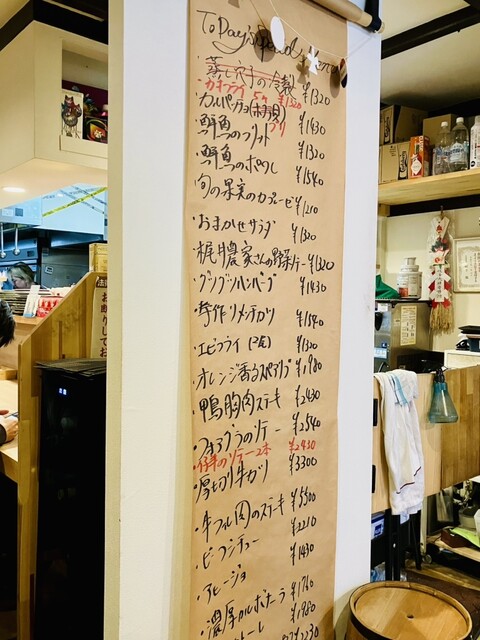 Today's
・蒸し穴子の冷製 ¥1320
カキフライ 5ヶ ¥1320
・カルパッチョ(ホタテ貝) ¥1430
ブリ
・鮮魚のフリット ¥1320
・鮮魚のポワレ ¥1540
旬の果実のカプレーゼ ¥1210
・おまかせサラダ ¥1320
・梶農家さんの野菜 ¥1320
・グツグツハンバーグ ¥1430
・手作りメンチカツ ¥1540
・エビフライ ¥1320
・オレンジ香るスペアリブ ¥1980
・鴨胸肉ステーキ ¥2430
・フォアグラのソテー ¥2540
・仔羊のソテー2本 ¥2430
・厚切り牛カツ ¥3300
・牛フィレ肉のステーキ ¥5500
・ビーフシチュー ¥2210
・アヒージョ ¥1430
・濃厚カルボナーラ ¥1760
¥1980
¥2230
お断りしてお